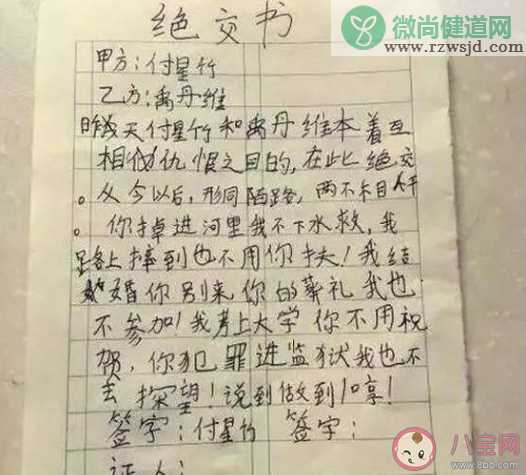 微尚健道网
www.rzwsjd.com
绝交书
甲方：付星竹
乙方：禹丹维
昨天付星竹和禹丹维本着互
相仇恨之目的，在此绝交
。从今以后，形同陌路，两不相干
。你掉进河里我不下水救，我
路上摔到也不用你扶！我结
婚你别来你的葬礼我也
不参加！我考上大学你不用祝
贺，你犯罪进监狱我也不
去探望！说到做到！哼！
签字：付星竹 签字：
证人：
八宝网
www.8bb.com